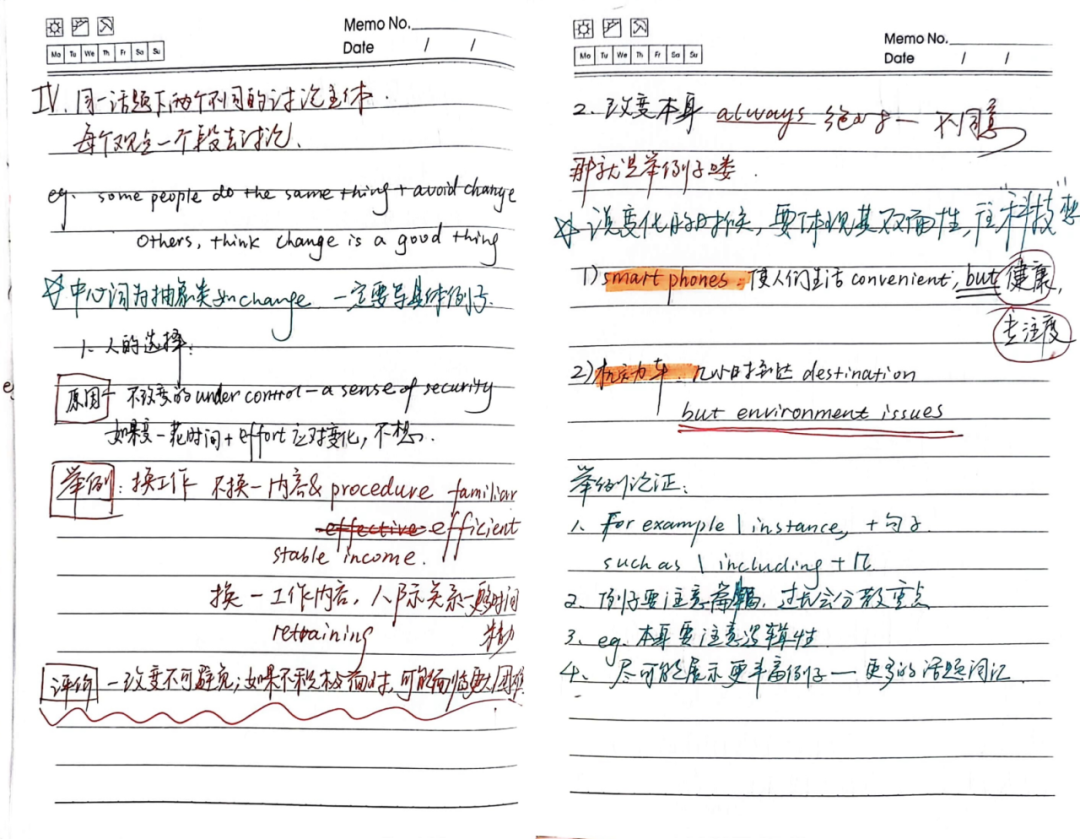 Memo No.
Mo Tu We Th Fr Sa Su
Date / /
IV. 同一话题下两个不同的讨论主体.
每个观点一个段去讨论.
eg. some people do the same thing + avoid change
Others, think change is a good thing
☆中心词为抽象类如change 一定要写具体例子.
1. 人的选择:
原因 - 不改变的under control - a sense of security
如果变 - 花时间 + effort 应对变化, 不想.
举例: 换工作 不换 - 内容& procedure familiar
effective efficient
stable income.
换 - 工作内容, 人际关系 - 时间
retraining 精力
评价 - 改变不可避免; 如果不积极面对, 可能面临更大困难
Memo No.
Mo Tu We Th Fr Sa Su
Date / /
2. 改变本身 always 绝对 — 不同意
那就是举例子喽.
☆说变化的时候, 要体现其双面性, 往"科技"想
1) smart phones: 使人们生活 convenient, but 健康,
专注度
2) 机动车: 几小时到达 destination
but environment issues
举例论证:
1. For example | instance, + 句子.
such as | including + n.
2. 例子要注意篇幅, 过长会分散重点
3. eg. 本身要注意逻辑性
4. 尽可能展示更丰富例子 — 更多的话题词汇.